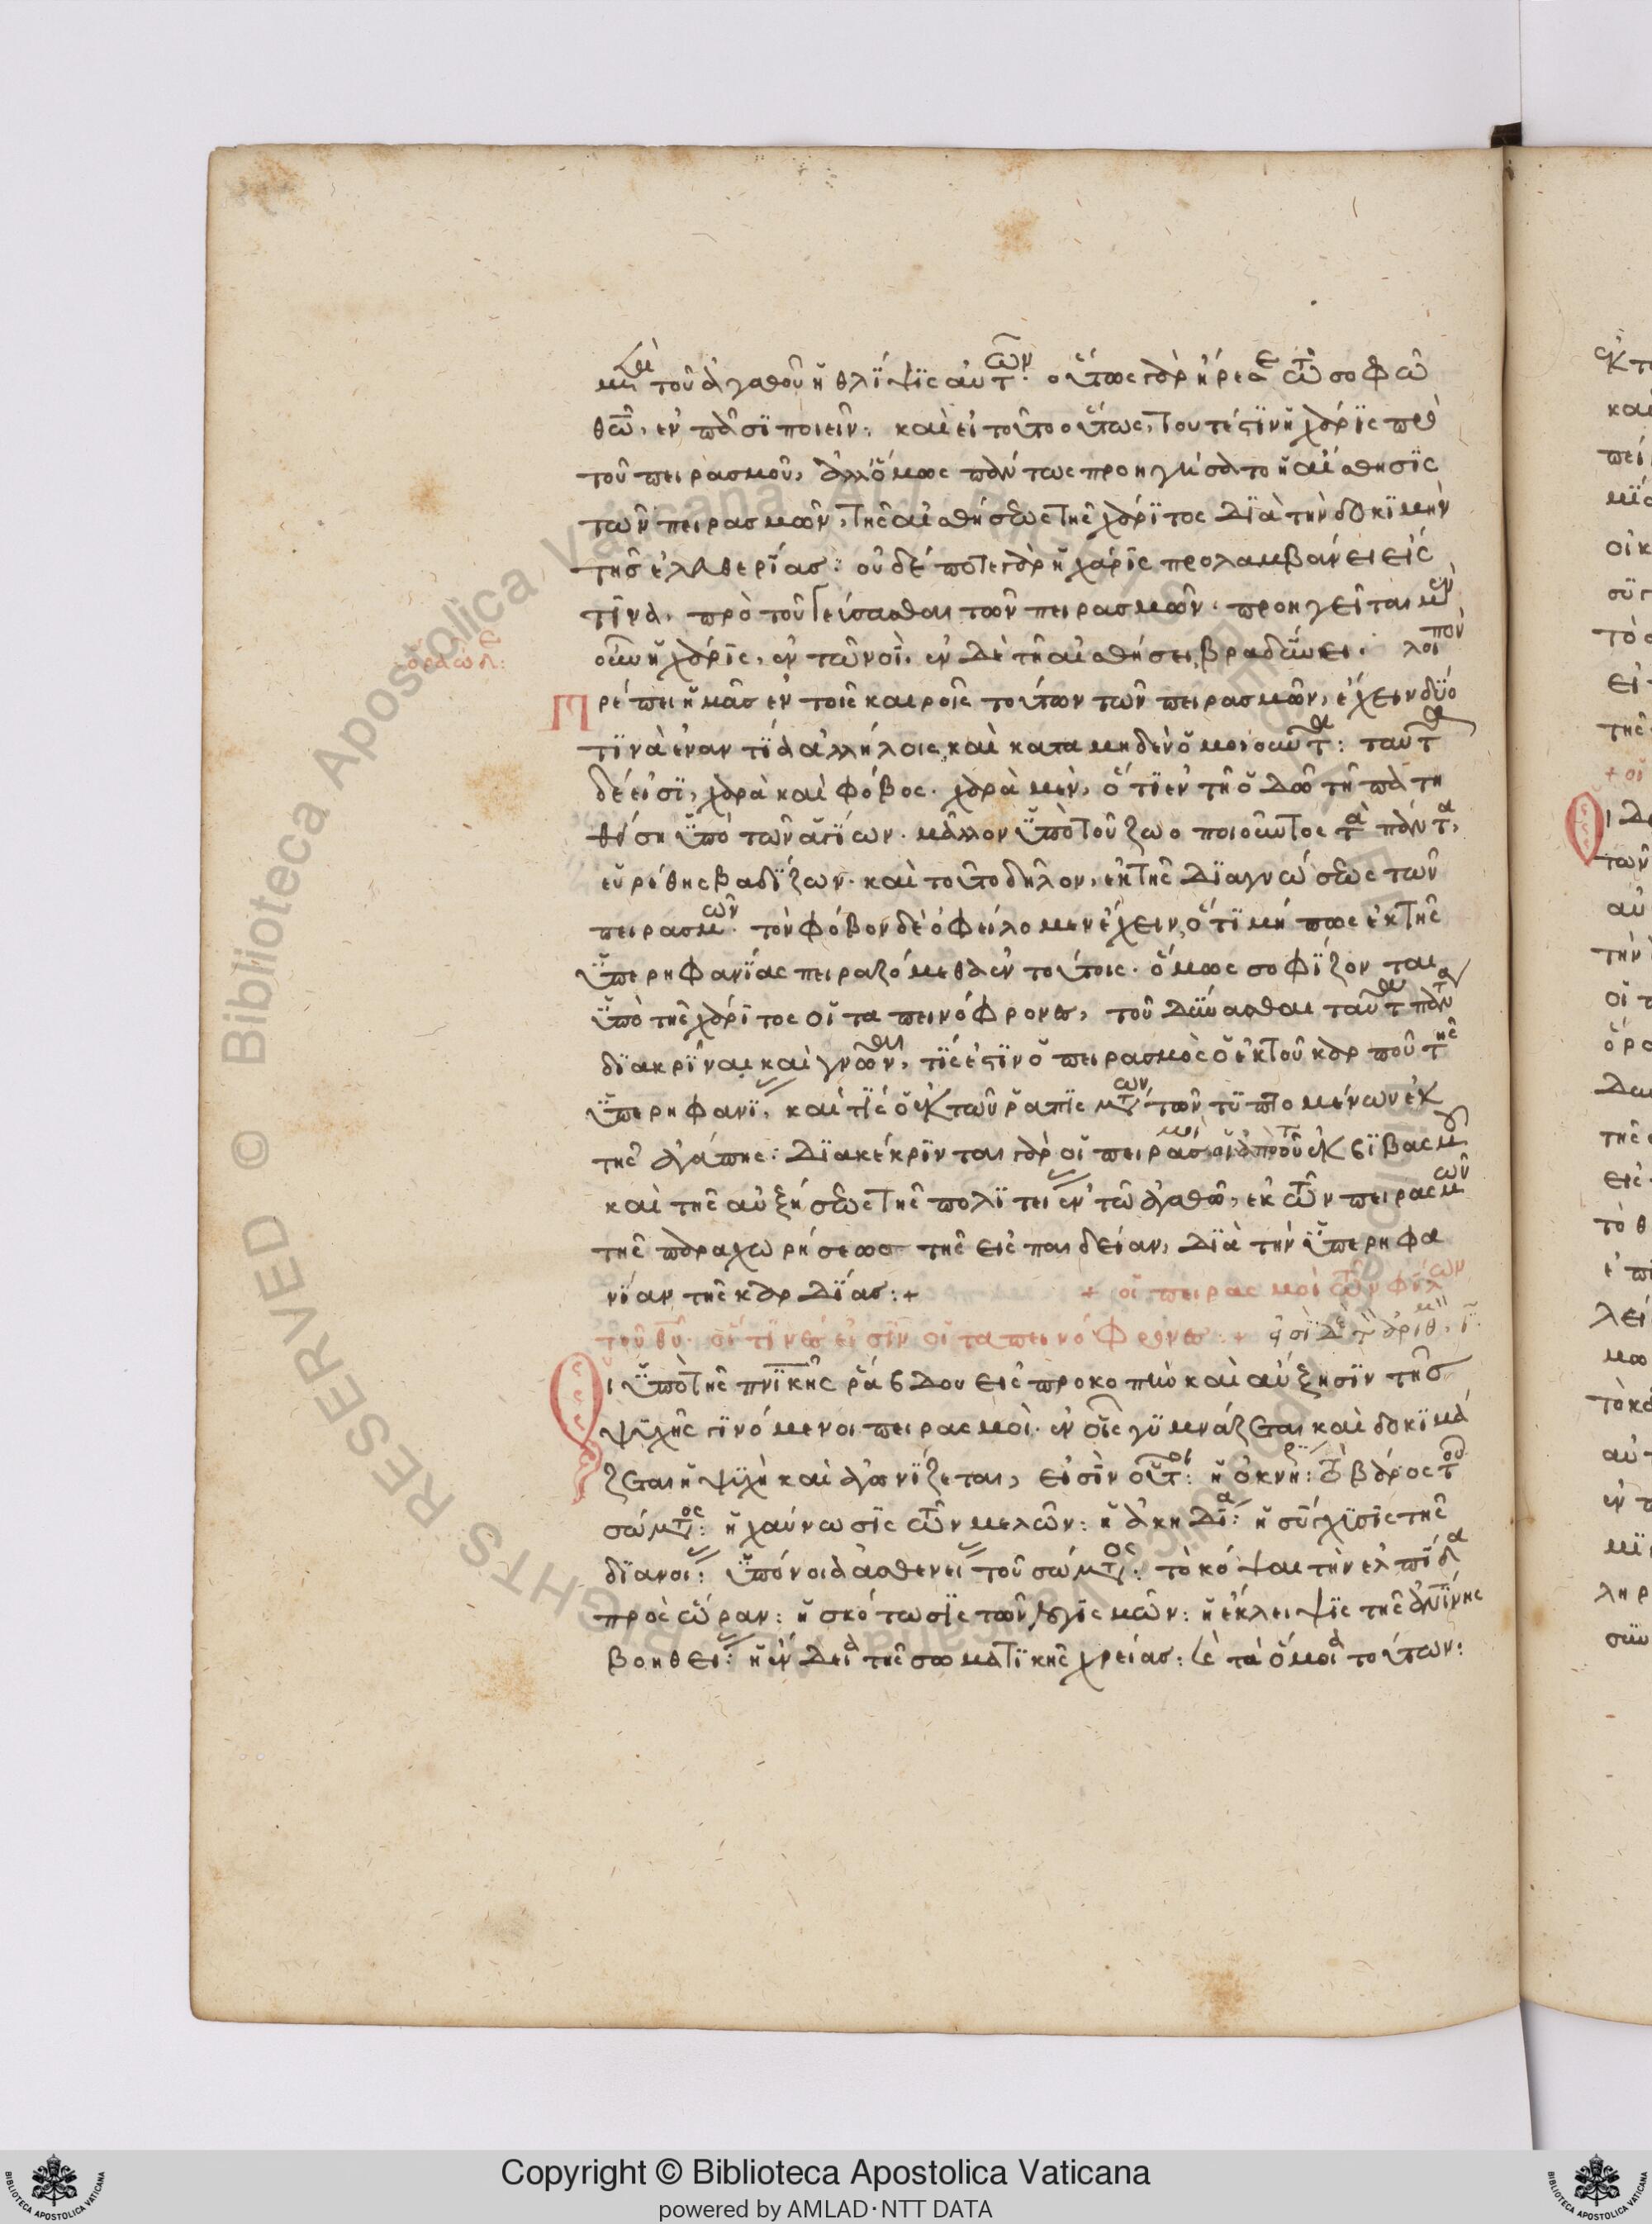 μὴ τοῦ ἀγαθοῦ ἡ θλίψις αὐτῶν. οὕτως γὰρ ἤρεσε τῶ σοφῶ
θεῶ, ἐν πᾶσι ποιεῖν. καὶ εἰ τοῦτο οὕτως, τουτέστιν ἡ χάρις πρὸ
τοῦ πειρασμοῦ, ἀλλ' ὅμως πάντως προηγήσατο ἡ αἴσθησις
τῶν πειρασμῶν, τῆς αἰσθήσεως τῆς χάριτος διὰ τὴν δοκιμὴν
τῆς ἐλευθερίας: οὐδέποτε γὰρ ἡ χάρις προλαμβάνει εἰς
τινὰ, πρὸ τοῦ γεύσασθαι τῶν πειρασμῶν. προηγεῖται μὲν
οὖν ἡ χάρις, ἐν τῶ νοῒ, ἐν δὲ τῆ αἰσθήσει βραδύνει. λοιπὸν
Πρέπει ἡμᾶς ἐν τοῖς καιροῖς τούτων τῶν πειρασμῶν, ἔχειν δύο
τινὰ ἐναντία ἀλλήλοις καὶ κατὰ μηδὲν ὁμοιοῦνται: ταῦτα
δέ εἰσι, χαρὰ καὶ φόβος. χαρὰ μὲν, ὅτι ἐν τῆ ὁδῶ τῆ πατη
θείση ὑπὸ τῶν ἁγίων. μᾶλλον ὑπὸ τοῦ ζωοποιοῦντος τὰ πάντα,
εὑρέθης βαδίζων. καὶ τοῦτο δῆλον, ἐκ τῆς διαγνώσεως τῶν
πειρασμῶν. τὸν φόβον δὲ ὀφείλομεν ἔχειν, ὅτι μή πως ἐκ τῆς
ὑπερηφανίας πειραζόμεθα ἐν τούτοις. ὅμως σοφίζονται
ὑπὸ τῆς χάριτος οἱ ταπεινόφρονες, τοῦ δύνασθαι ταῦτα πάντα
διακρῖναι καὶ γνῶναι, τίς ἐστιν ὁ πειρασμὸς ὁ ἐκ τοῦ καρποῦ τῆς
ὑπερηφανίας, καὶ τίς ὁ ἐκ τῶν ῥαπισμάτων τῶν τυπτομένων ἐκ
τῆς ἀγάπης: διακέκρινται γὰρ οἱ πειρασμοὶ οἱ ἀπὸ τοῦ ἐκστιβασμοῦ
καὶ τῆς αὐξήσεως τῆς πολιτείας ἐν τῶ ἀγαθῶ, ἐκ τῶν πειρασμῶν
τῆς παραχωρήσεως τῆς εἰς παιδείαν, διὰ τὴν ὑπερηφα
νίαν τῆς καρδίας:+ + οἱ πειρασμοὶ τῶν φίλων
τοῦ θεοῦ οἵτινές εἰσιν οἱ ταπεινόφρονες:+
Οἱ ὑπὸ τῆς πνικῆς ῥάβδου εἰς προκοπὴν καὶ αὔξησιν τῆς
ψυχῆς γινόμενοι πειρασμοὶ. ἐν οἷς γυμνάζεται καὶ δοκιμά
ζεται ἡ ψυχὴ καὶ ἀγωνίζεται, εἰσὶν οὗτοι: ἡ ὀκνηρία: τὸ βάρος τοῦ
σώματος: ἡ χαύνωσις τῶν μελῶν: ἡ ἀκηδία: ἡ σύγχισις τῆς
διανοίας: ὑπόνοια ἀσθενείας τοῦ σώματος: τὸ κόψαι τὴν ἐλπίδα
πρὸς ὥραν: ἡ σκότωσις τῶν λογισμῶν: ἡ ἔκλειψις τῆς ἀνθρωπίνης
βοηθείας: ἡ ἔνδεια τῆς σωματικῆς χρείας: καὶ τὰ ὅμοια τούτων:
Copyright © Biblioteca Apostolica Vaticana
powered by AMLAD·NTT DATA